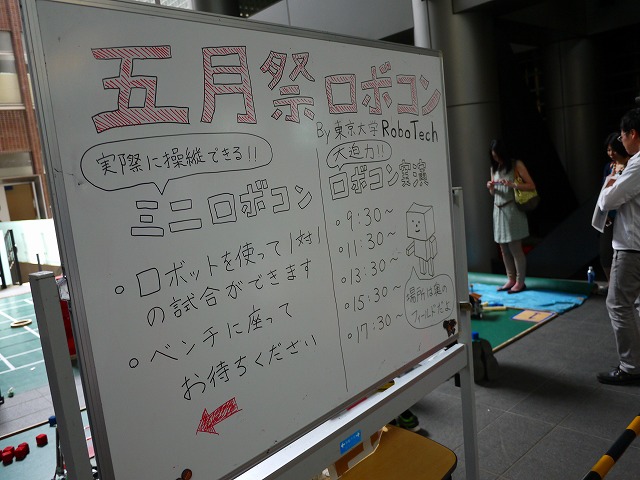 五月祭ロボコン
By 東京大学RoboTech
実際に操縦できる!!
ミニロボコン
。ロボットを使って1対1
の試合ができます
。ベンチに座って
お待ちください
大迫力!!
ロボコン実演
。9:30~
。11:30~
。13:30~
。15:30~
。17:30~
場所は奥の
フィールドだよ